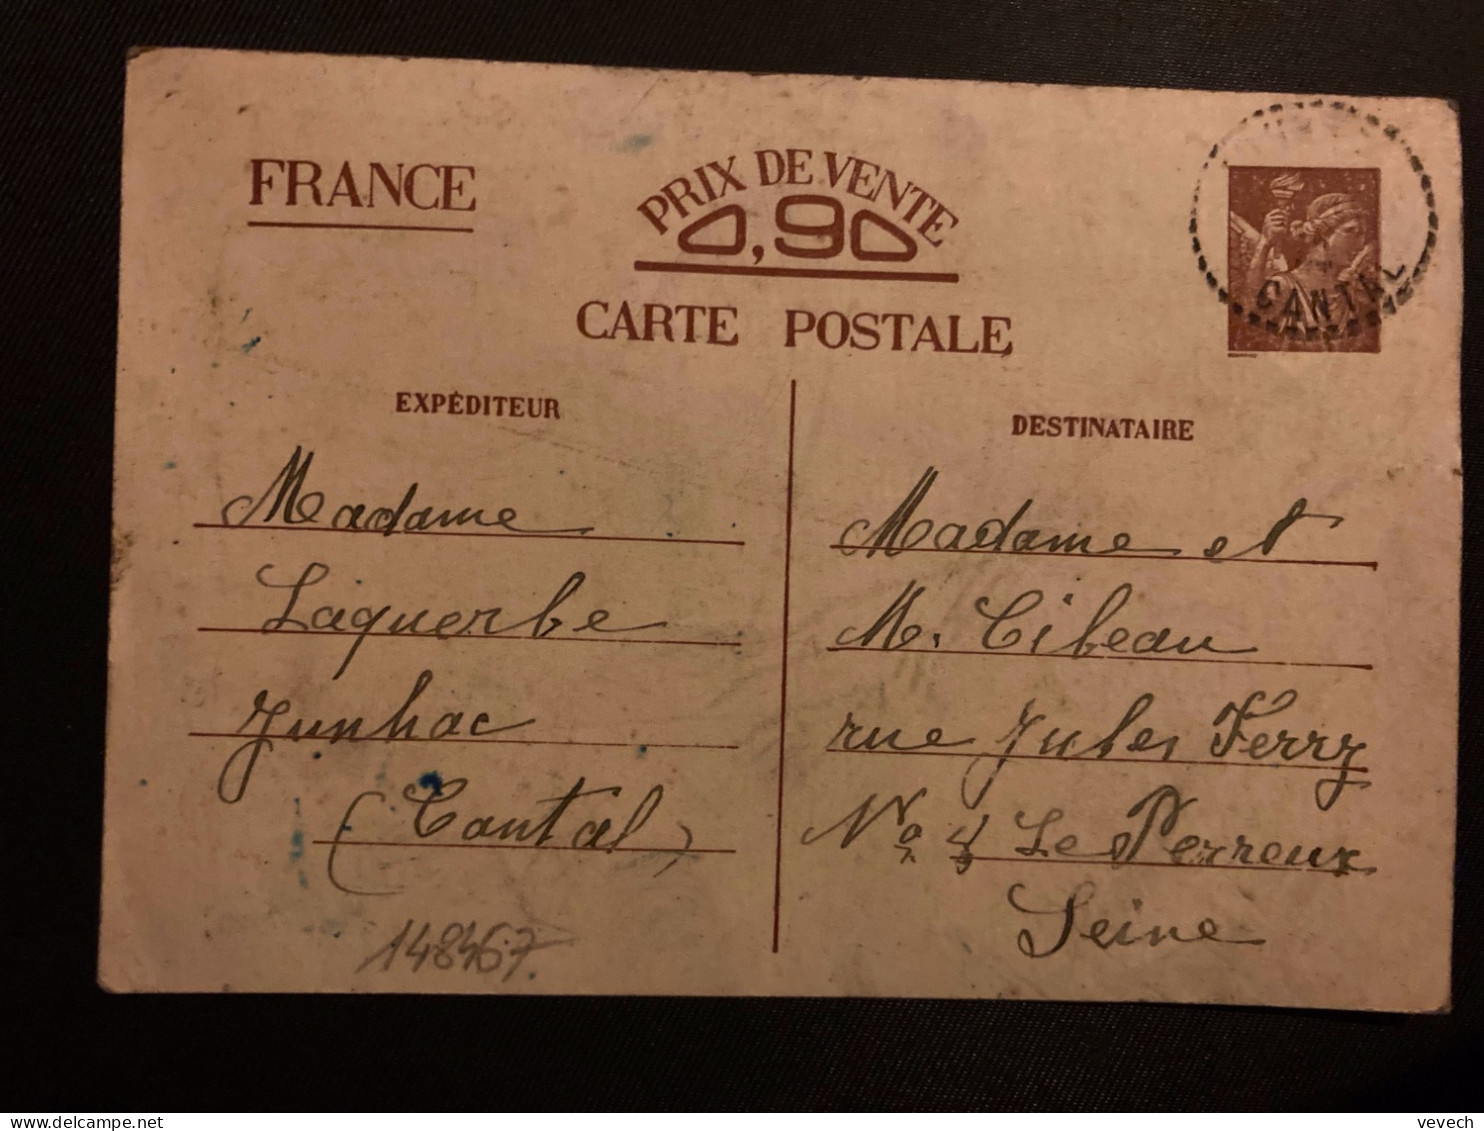 FRANCE
PRIX DE VENTE
0,90
CARTE POSTALE
CANTAL
EXPÉDITEUR
Madame
Laquerbe
Junhac
(Cantal)
148467
DESTINATAIRE
Madame et
M. Cibeau
rue Jules Ferry
No Le Perreux
Seine
vevech